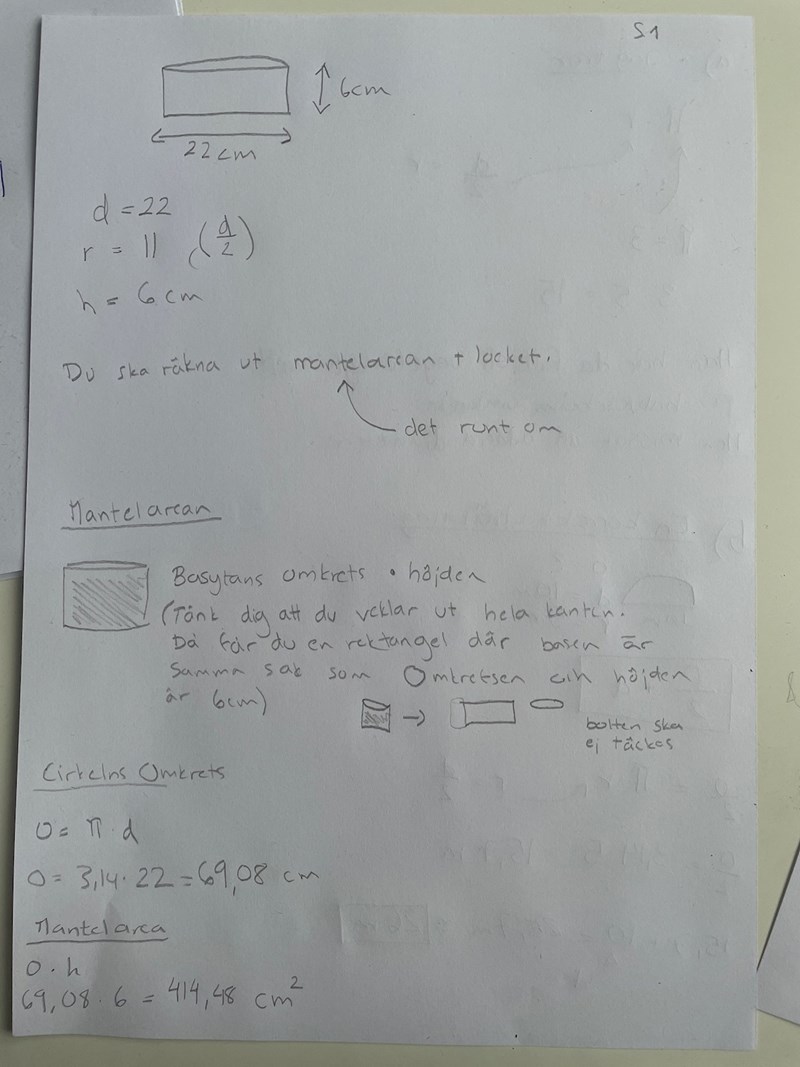 S1
6cm
22cm
d = 22
r = 11 (d/2)
h = 6 cm
Du ska räkna ut mantelarean + locket.
det runt om
Mantelarean
Basytans omkrets • höjden
(Tänk dig att du veklar ut hela kanten.
Då får du en rektangel där basen är
samma sak som Omkretsen och höjden
är 6cm)
botten ska
ej täckas
Cirkelns Omkrets
O = π · d
O = 3,14 · 22 = 69,08 cm
Mantelarea
O · h
69,08 · 6 = 414,48 cm²